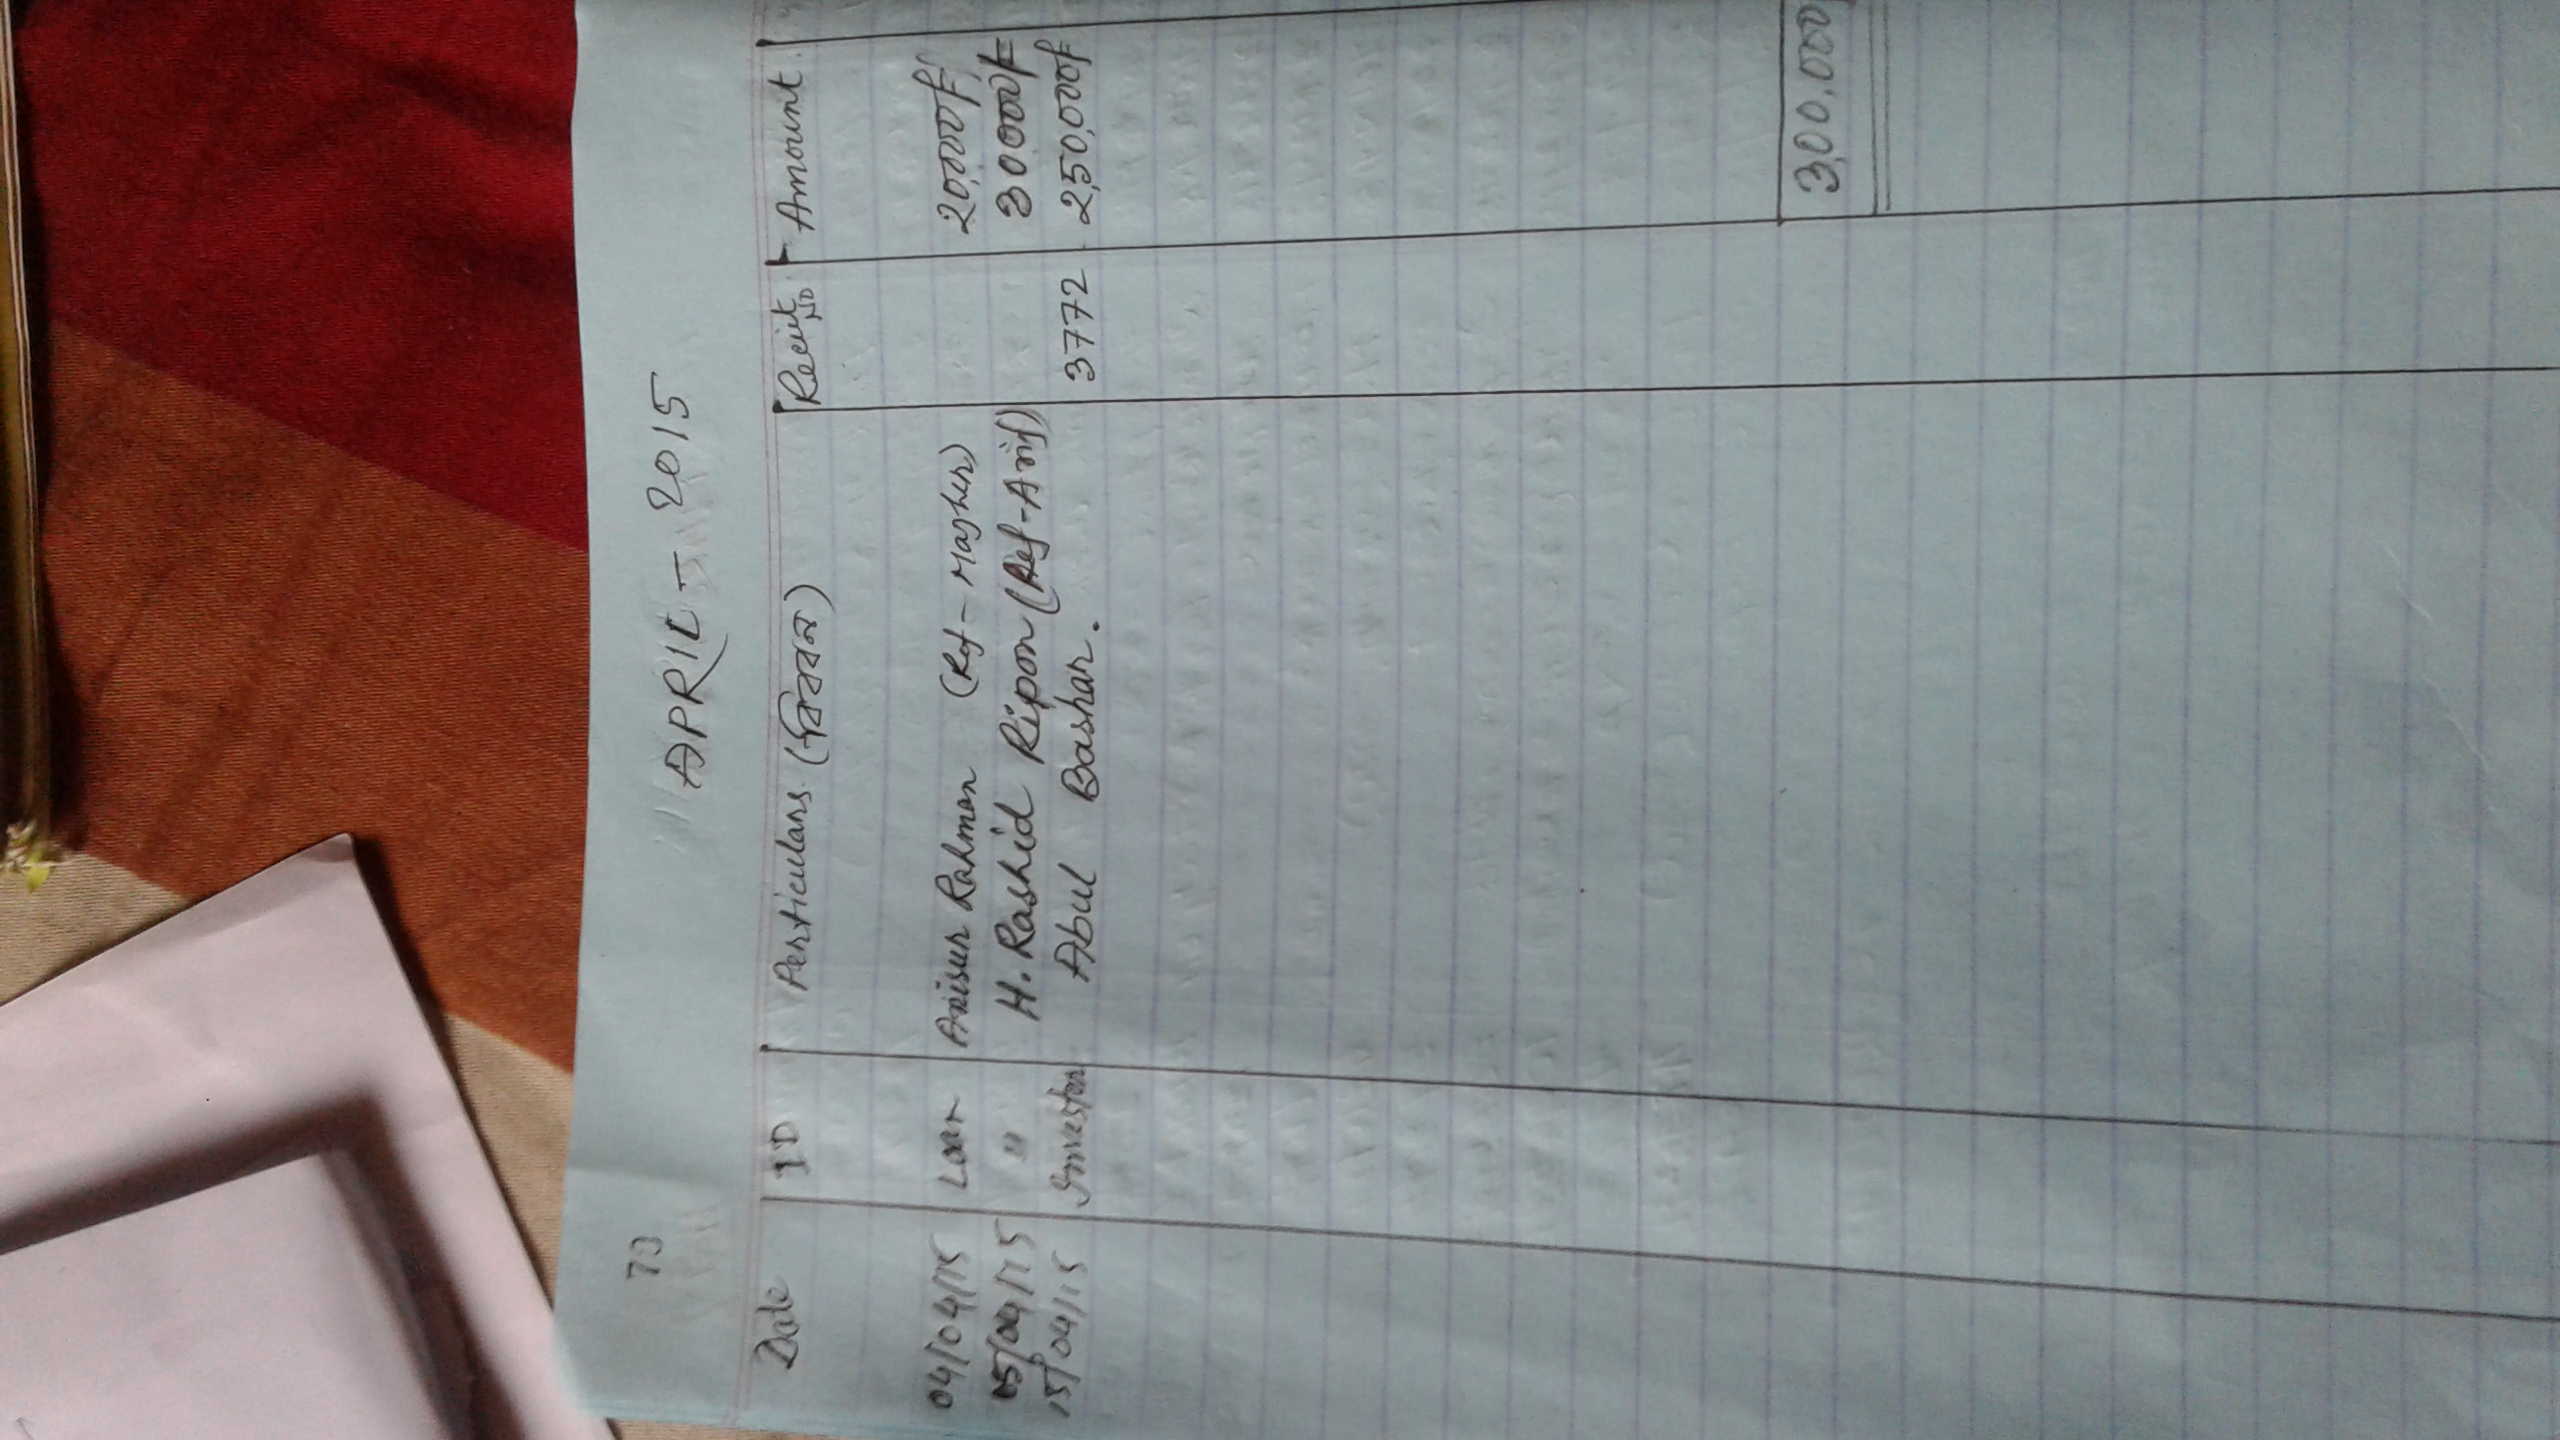 73
APRIL - 2015
Date ID Perticulars (বিবরন) Reciit NO Amount
04/04/15 Loan Anisur Rahman (Ref - Mazher) 20,000/=
05/04/15 " H. Rashid Ripon (Ref - Arif) 30000/=
15/04/15 Investor Abul Bashar. 3772 2,50,000/=
3,00,000